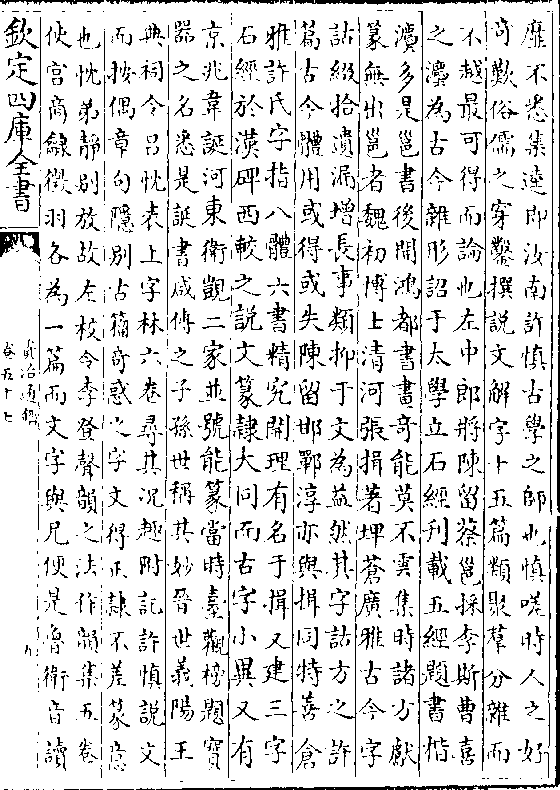 靡不悉集逵即汝南許慎古學之師也慎嗟時人之好
奇歎俗儒之穿鑿撰説文解字十五篇類聚羣分雜而
不越最可得而論也左中郎將陳留蔡邕採李斯曹喜
之灋為古今雜形詔于太學立石經刊載五經題書楷
灋多是邕書後開鴻都書畫奇能莫不雲集時諸方獻
篆無出邕者魏初博士清河張揖著埤蒼廣雅古今字
詁綴拾遺漏増長事類抑于文為益然其字詁方之許
篇古今體用或得或失陳留邯鄲淳亦與揖同特善倉
雅許氏字指八體六書精究閑理有名于揖又建三字
石經於漢碑西較之説文篆隸大同而古字小異又有
京兆韋誕河東衛覬二家並號能篆當時臺觀榜題寳
器之名悉是誕書咸傳之子孫世稱其妙晉世義陽王
典祠令吕忱表上字林六卷尋其况趣附記許慎説文
而按偶章句隱别古籕奇惑之字文得正隸不差篆意
也忱弟靜别放故左校令李登聲韻之法作韻集五卷
使宫商龣徵羽各為一篇而文字與兄便是魯衛音讀
欽定四庫全書
資治通鑑
卷五十七
九